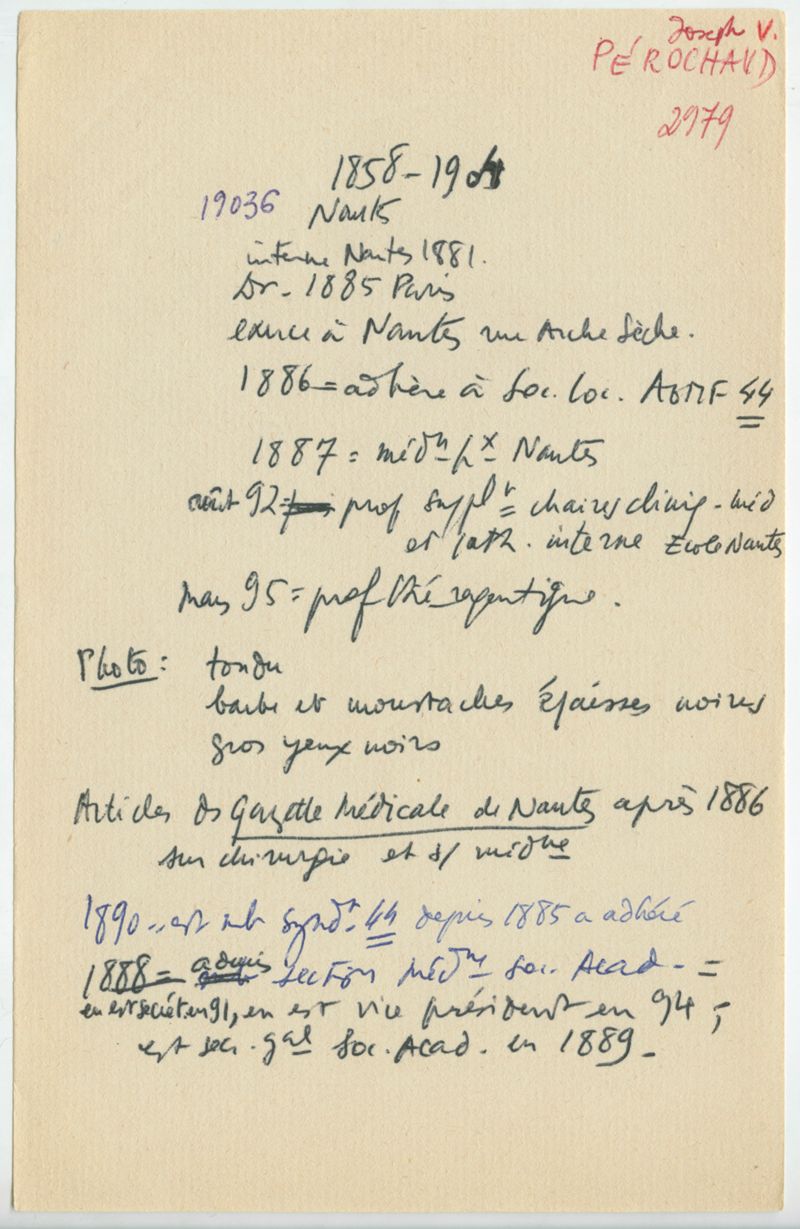 Joseph V.
PÉROCHAUD
2979
1858-190
19036 Nantes
interne Nantes 1881.
Dr. 1885 Paris
exerce à Nantes rue Arche Sèche.
1886 = adhère à Soc. loc. AGMF 44
1887 = médn hx Nantes
août 92 = prof supplt chaires cliniq. méd
et path. interne Ecole Nantes
mars 95 = prof thérapeutique.
Photo : tondu
barbe et moustaches épaisses noires
gros yeux noirs
Articles ds Gazette Médicale de Nantes après 1886
sur chirurgie et s/ médne
1890 .. est mb syndt 44 depuis 1885 a adhéré
1888 = admis section médn Soc. Acad. =
en est secrét en 91, en est vice président en 94 ;
est sec. gal Soc. Acad. en 1889 -